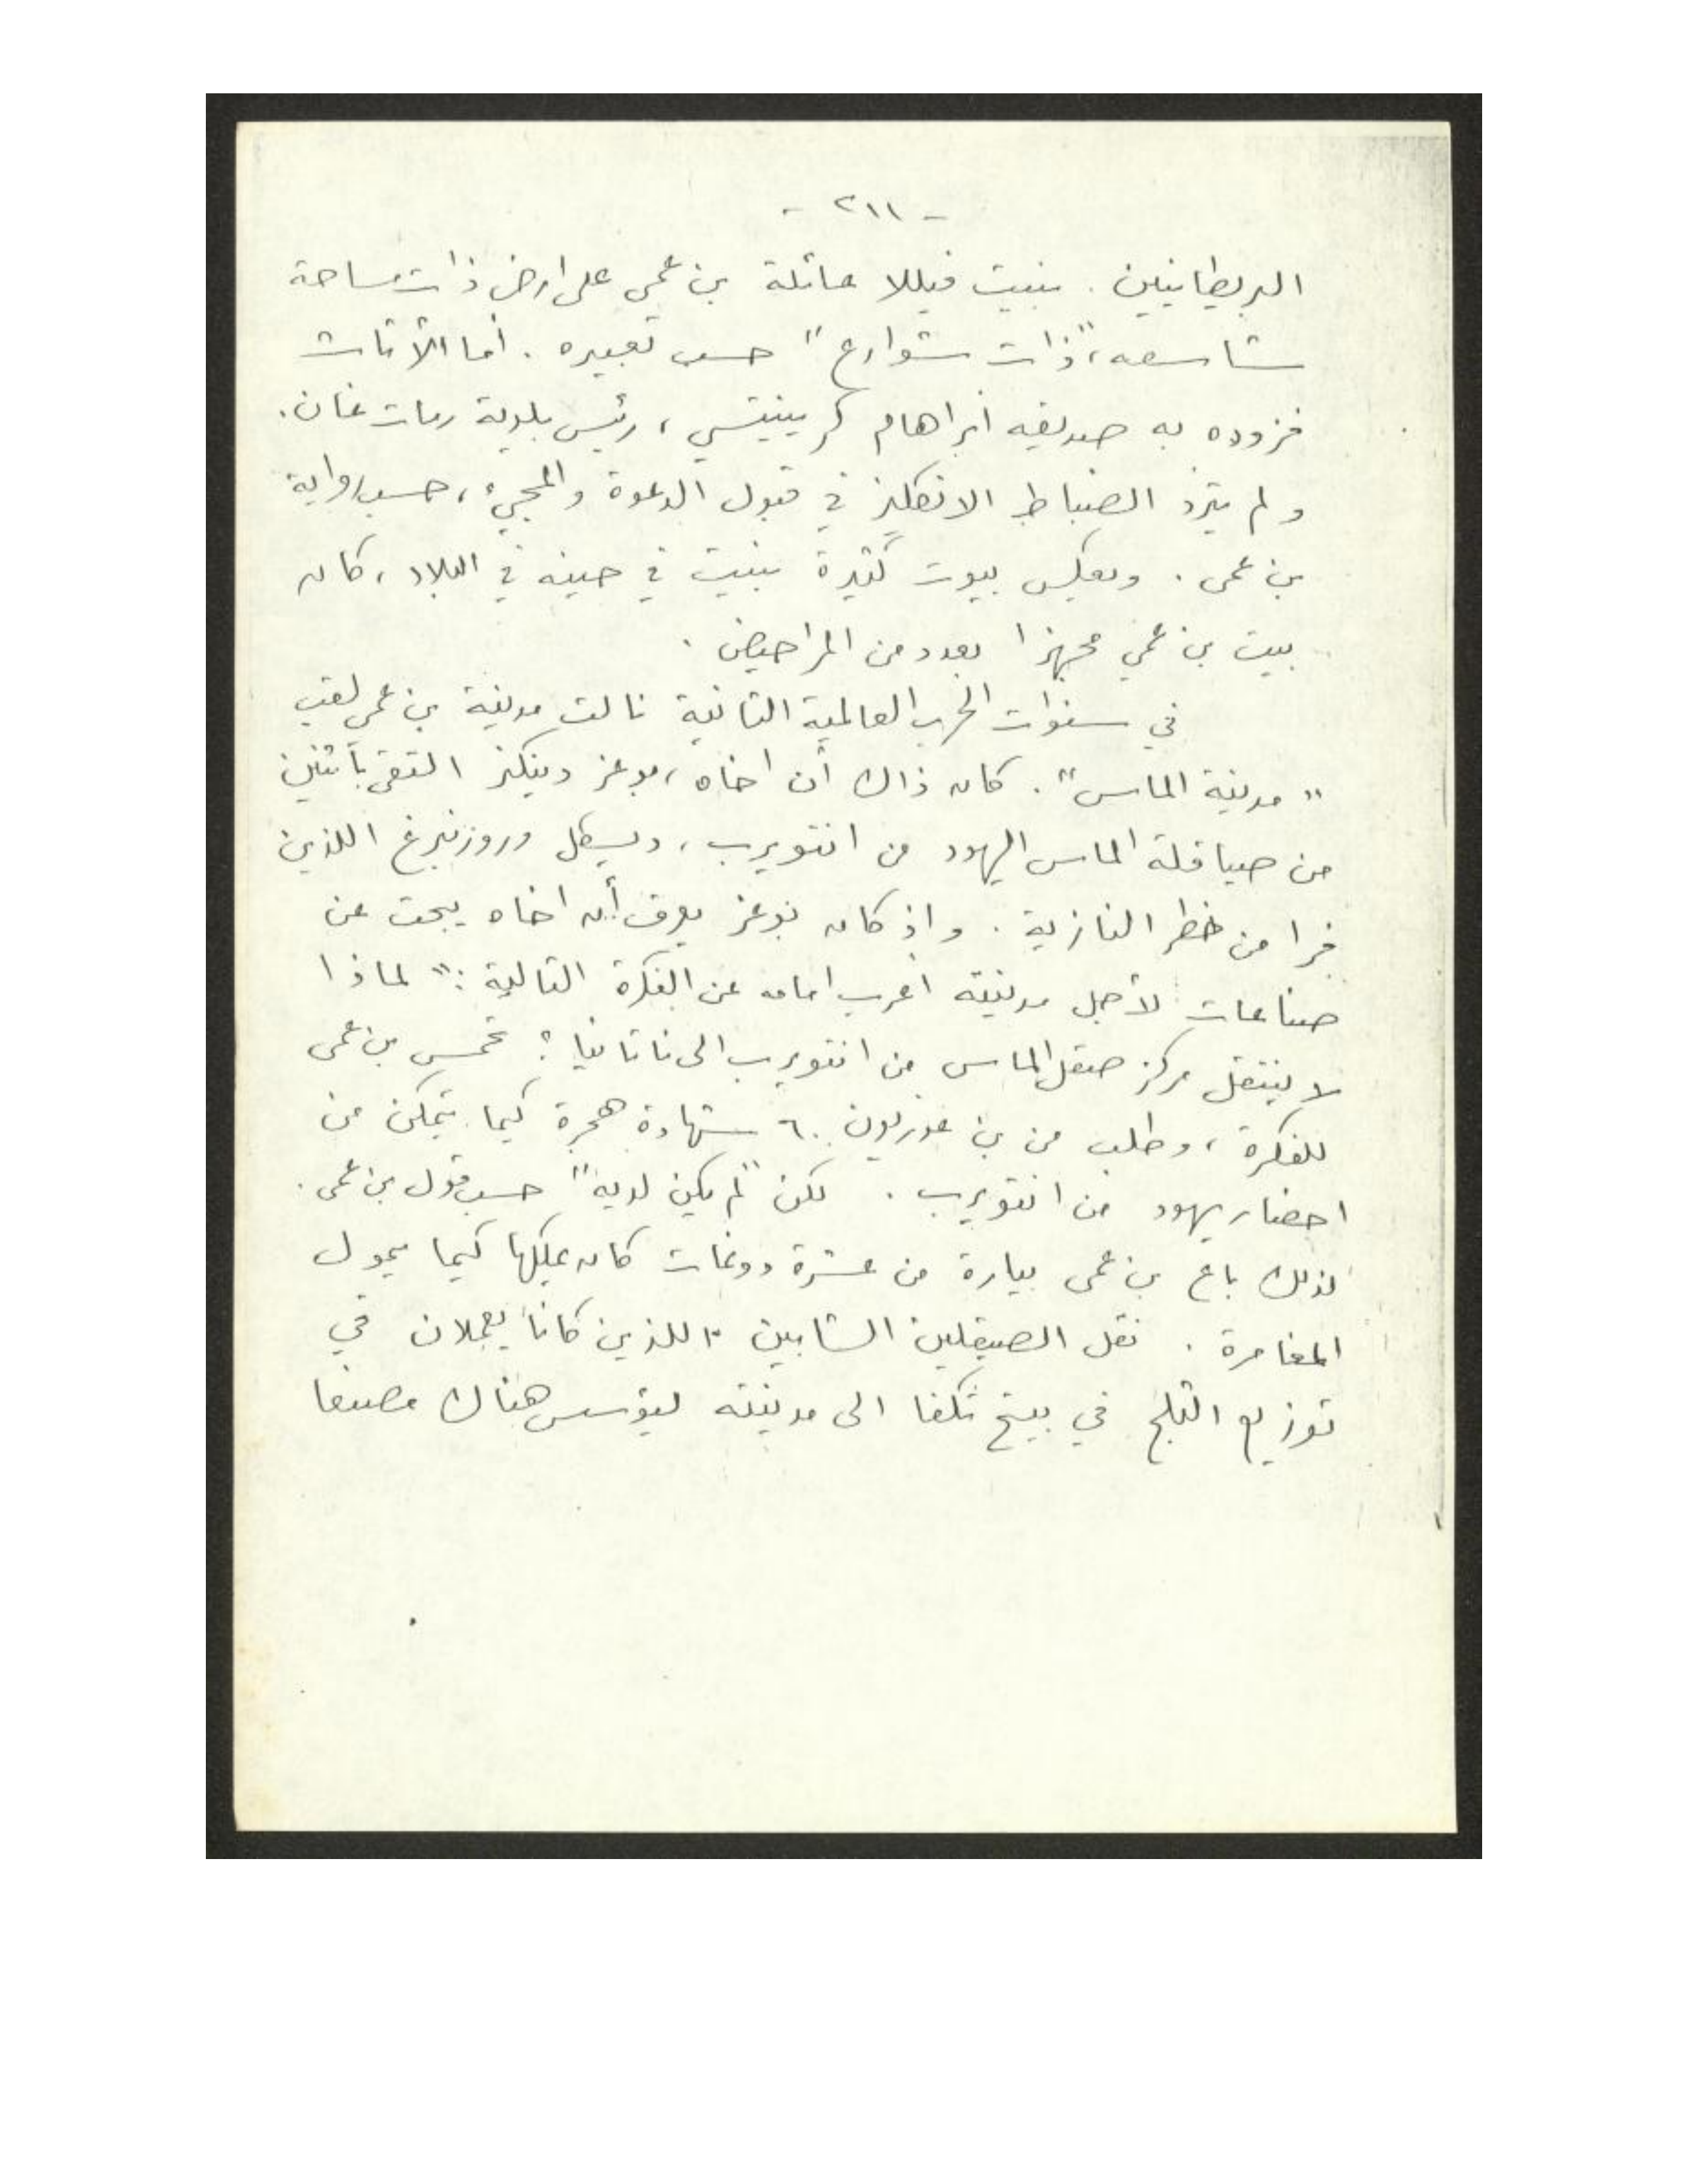 - ٢١١ -
البريطانيين . بنيت فيللا عائلة بن عمي على ارض ذات مساحة
شاسعه، "ذات شوارع" حسب تعبيره . أما الأثاث
فزوده به صديقه ابراهام كرينيتسي ، رئيس بلدية رمات غان .
و لم يترد الضباط الانكليز في قبول الدعوة والمجيء ، حسب رواية
بن عمى . وبعكس بيوت كثيرة بنيت في حينه في البلاد ، كان
بيت بن عمي مجهزا بعدد من المراحيض .
في سنوات الحرب العالمية الثانية نالت مدينة بن عمي لقب
" مدينة الماس " . كان ذاك أن اخاه ، بوعز دينكز التقى بأثنين
من صياقلة الماس اليهود من انتويرب ، ويسكل وروزنبرغ اللذين
فرا من خطر النازية . واذ كان بوعز يعرف أن اخاه يبحث عن
صناعات لأجل مدينته أعرب امامه عن الفكرة التالية : " لماذا
لا ينتقل مركز صقل الماس من انتويرب الى ناتانيا ؟ تحمس بن عمى
للفكرة ، وطلب من بن غوريون ٦٠ شهادة هجرة كيما يتمكن من
احضار يهود من انتويرب . لكن "لم يكن لديه" حسب قول بن عمى .
لذلك باع بن عمى بيارة من عشرة دونمات كان يملكها كيما يمول
المغامرة . نقل الصيقلين الشابين اللذين كانا يعملان في
توزيع الثلج في بيتح تكفا الى مدينته ليؤسس هناك مصنعا